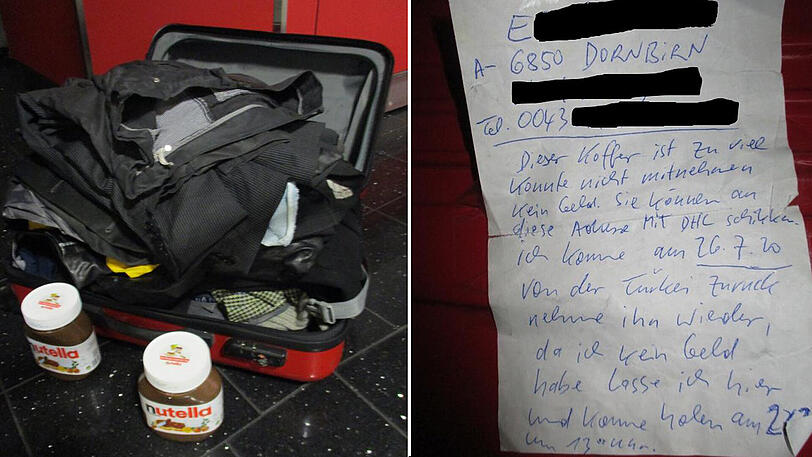 nutella
nutella
E
A- 6850 DORNBIRN
Tel. 0043
Dieser Koffer ist zu viel
konnte nicht mitnehmen
kein Geld. Sie können an
diese Adresse MIT DHL schikken
ich komme am 26.7.20
von der Türkei zurück
nehme ihn wieder,
da ich kein Geld
habe lasse ich hier
und komme holen am
um 13